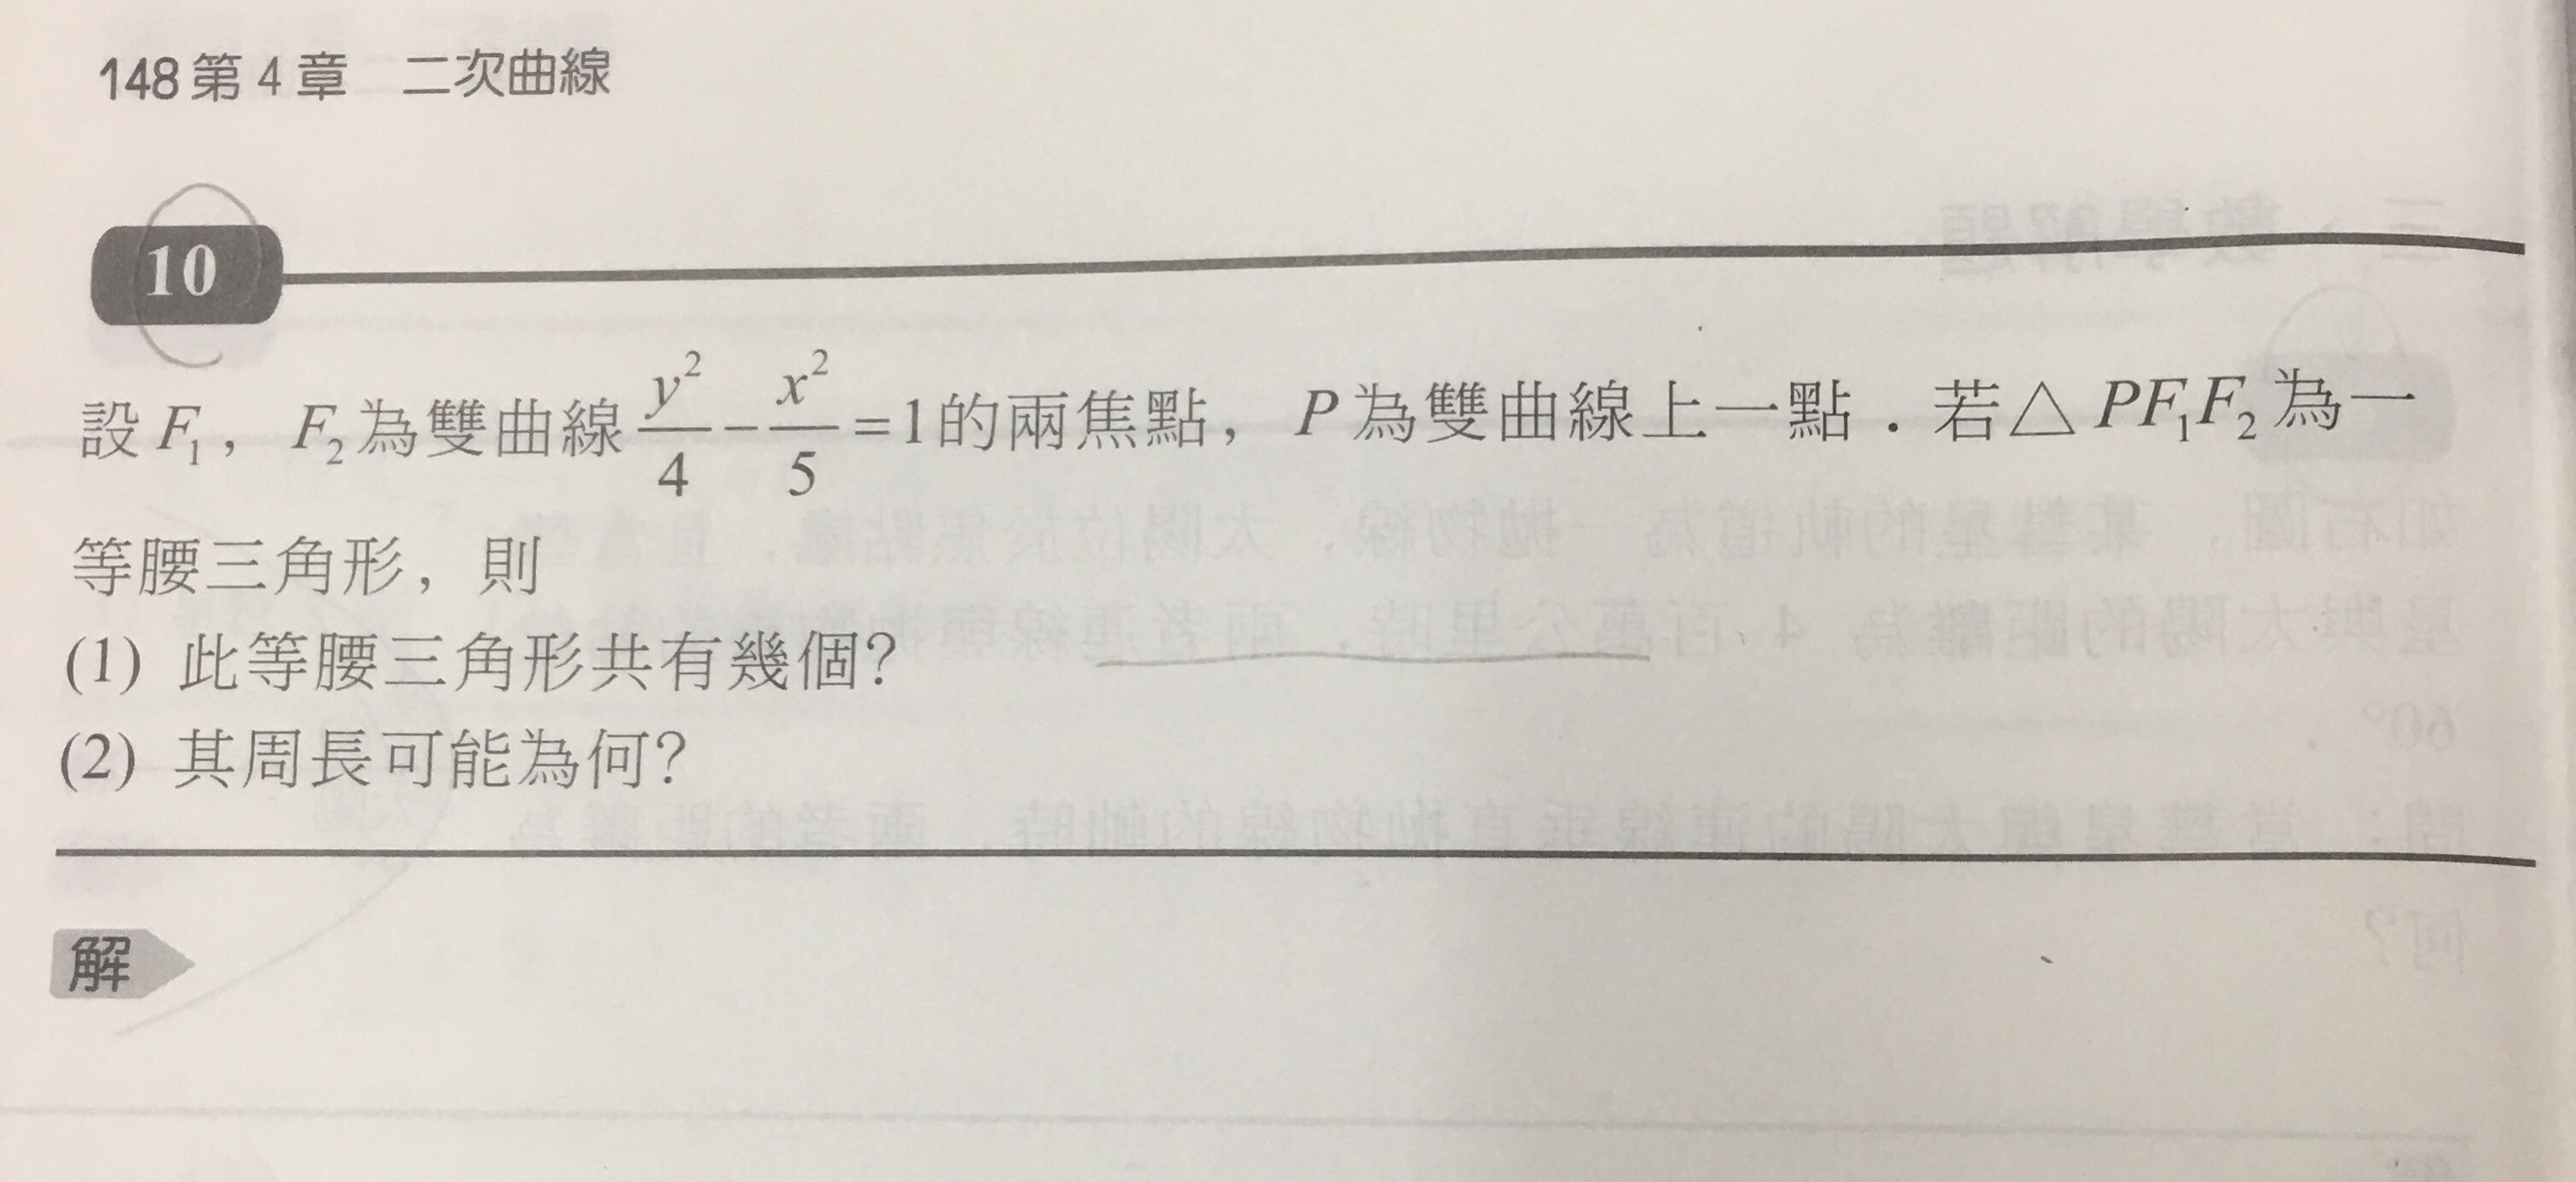 148 第 4 章 二次曲線
10
設 F₁，F₂ 為雙曲線 y²/4 − x²/5 = 1 的兩焦點，P 為雙曲線上一點．若△PF₁F₂ 為一
等腰三角形，則
(1) 此等腰三角形共有幾個？
(2) 其周長可能為何？
解